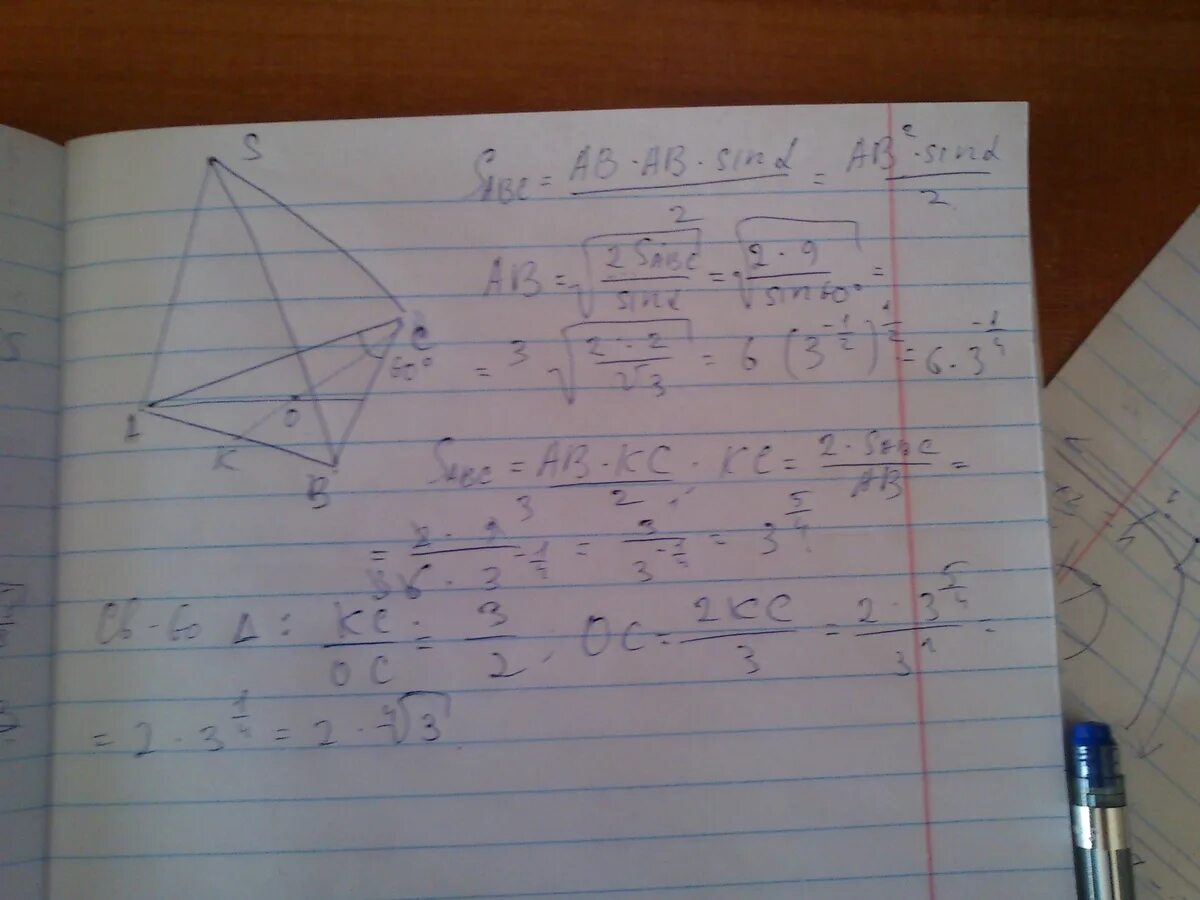 S
S_ABC = (AB · AB · sinα)/2 = (AB² · sinα)/2
AB = √(2S_ABC/sinα) = √(2 · 9/sin60°) =
C
60°
= 3√(2 · 2/√3) = 6(3^(-1/2))^(1/2) = 6 · 3^(-1/4)
O
K
B
S_ABC = (AB · KC)/2; KC = (2 · S_ABC)/AB =
= (2 · 9)/(6 · 3^(-1/4)) = 3/3^(-1/4) = 3^(5/4)
Св-во Δ: KC/OC = 3/2; OC = 2KC/3 = (2 · 3^(5/4))/3¹ =
= 2 · 3^(1/4) = 2 · ⁴√3